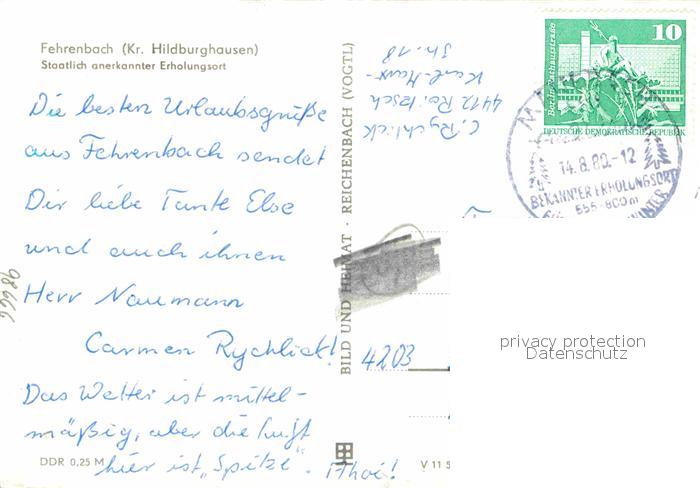 Fehrenbach (Kr. Hildburghausen)
Staatlich anerkannter Erholungsort
Die besten Urlaubsgrüße
aus Fehrenbach sendet
Dir liebe Tante Else
und auch ihnen
Herr Naumann
Carmen Rychlick!
Das Wetter ist mittel-
mäßig, aber die Luft
hier ist „Spitze".
DDR 0,25 M
98666
BILD UND HEIMAT · REICHENBACH (VOGTL)
C. Rychlick
4412 Roitzsch
Karl-Marx-
Str. 18
4203
V 11 5
10
Berlin, Rathausstraße
DEUTSCHE DEMOKRATISCHE REPUBLIK
14.8.80.-12
BEKANNTER ERHOLUNGSORT
555-800m
WINTER
privacy protection
Datenschutz